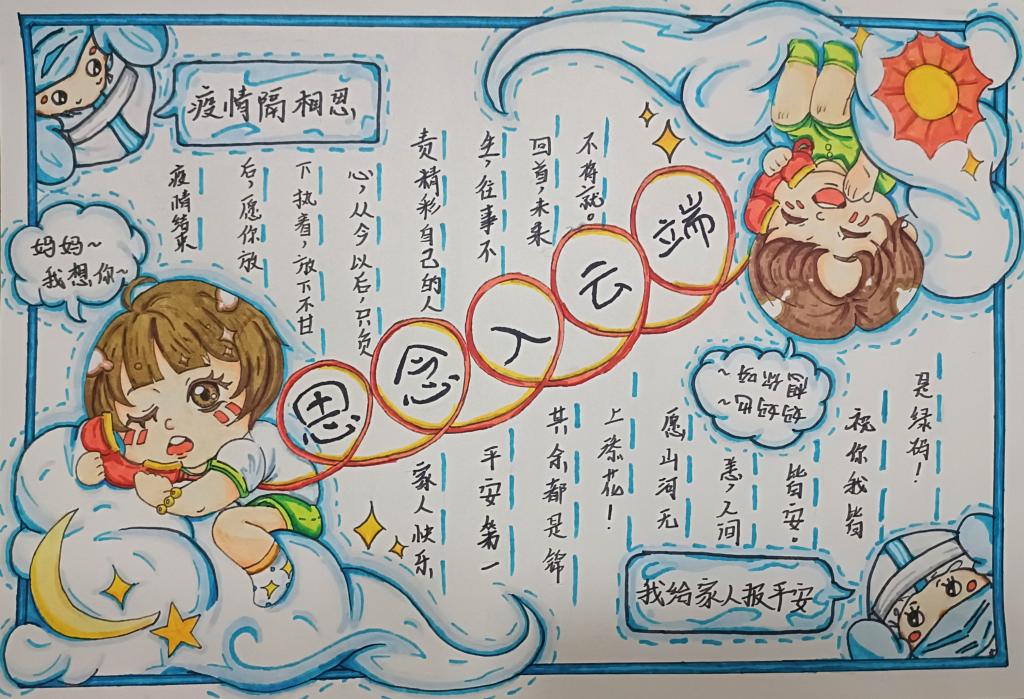 疫情隔相思
妈妈~
我想你~
疫情结束
后,愿你放
下执着,放下不甘
心,从今以后,只负
责精彩自己的人
生,往事不
回首,未来
不将就。
思念入云端
家人快乐
平安第一
其余都是锦
上添花!
愿山河无
恙,人间
皆安。
祝你我皆
是绿码!
妈妈也~
想你呀~
我给家人报平安